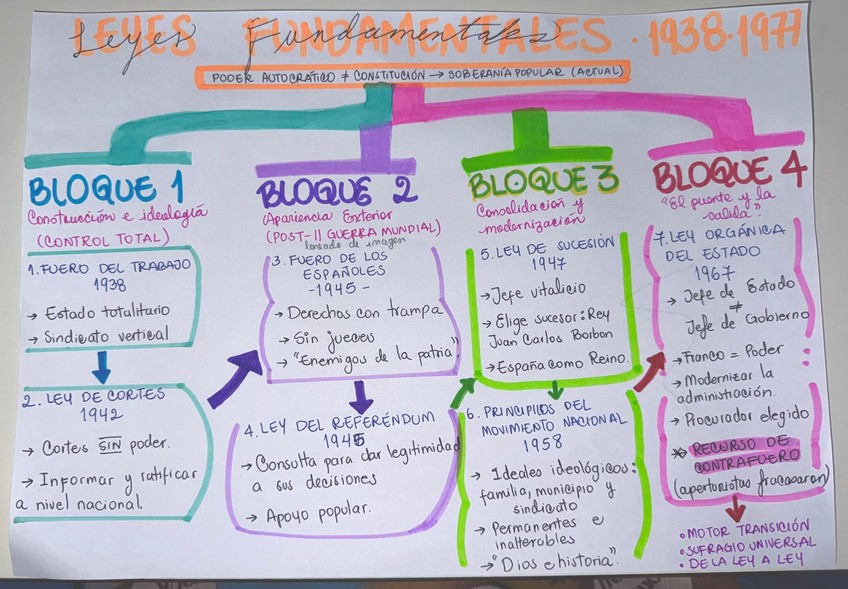 Leyes Fundamentales
LEYES FUNDAMENTALES · 1938-1977
PODER AUTOCRÁTICO ≠ CONSTITUCIÓN → SOBERANÍA POPULAR (ACTUAL)
BLOQUE 1
Construcción e ideología
(CONTROL TOTAL)
1. FUERO DEL TRABAJO
1938
→ Estado totalitario
→ Sindicato vertical
2. LEY DE CORTES
1942
→ Cortes SIN poder.
→ Informar y ratificar
a nivel nacional.
BLOQUE 2
Apariencia Exterior
(POST-II GUERRA MUNDIAL)
lavado de imagen
3. FUERO DE LOS
ESPAÑOLES
-1945-
→ Derechos con trampa
→ Sin jueces
→ "Enemigos de la patria"
4. LEY DEL REFERÉNDUM
1945
→ Consulta para dar legitimidad
a sus decisiones
→ Apoyo popular.
BLOQUE 3
Consolidación y
modernización
5. LEY DE SUCESIÓN
1947
→ Jefe vitalicio
→ Elige sucesor: Rey
Juan Carlos Borbon
→ España como Reino.
6. PRINCIPIOS DEL
MOVIMIENTO NACIONAL
1958
→ Ideales ideológicos:
familia, municipio y
sindicato
→ Permanentes e
inalterables
→ "Dios e historia".
BLOQUE 4
"El puente y la
salida"
7. LEY ORGÁNICA
DEL ESTADO
1967
→ Jefe de Estado
≠
Jefe de Gobierno
→ Franco = Poder
→ Modernizar la
administración.
→ Procurador elegido
* RECURSO DE
CONTRAFUERO
(aperturistas fracasaron)
• MOTOR TRANSICIÓN
• SUFRAGIO UNIVERSAL
• DE LA LEY A LEY